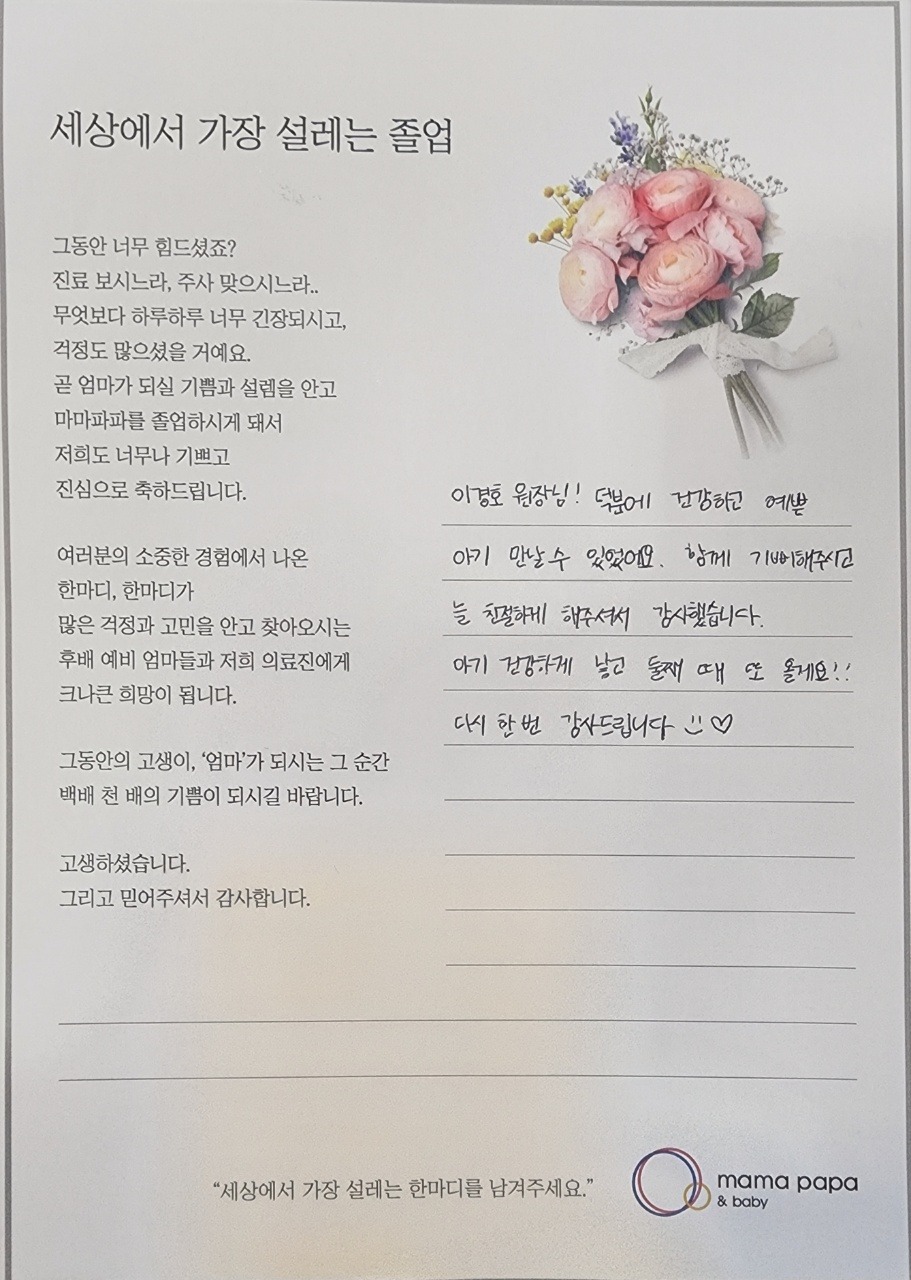 세상에서 가장 설레는 졸업
그동안 너무 힘드셨죠?
진료 보시느라, 주사 맞으시느라..
무엇보다 하루하루 너무 긴장되시고,
걱정도 많으셨을 거예요.
곧 엄마가 되실 기쁨과 설렘을 안고
마마파파를 졸업하시게 돼서
저희도 너무나 기쁘고
진심으로 축하드립니다.
여러분의 소중한 경험에서 나온
한마디, 한마디가
많은 걱정과 고민을 안고 찾아오시는
후배 예비 엄마들과 저희 의료진에게
크나큰 희망이 됩니다.
그동안의 고생이, ‘엄마’가 되시는 그 순간
백배 천 배의 기쁨이 되시길 바랍니다.
고생하셨습니다.
그리고 믿어주셔서 감사합니다.
이경호 원장님! 덕분에 건강하고 예쁜
아기 만날 수 있었어요. 함께 기뻐해주시고
늘 친절하게 해주셔서 감사했습니다.
아기 건강하게 낳고 둘째 때 또 올게요!!
다시 한 번 감사드립니다 :) ♡
“세상에서 가장 설레는 한마디를 남겨주세요.”
mama papa
& baby